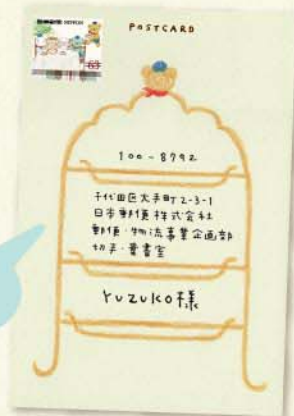 POSTCARD
63
100-8792
千代田区大手町2-3-1
日本郵便株式会社
郵便・物流事業企画部
切手・葉書室
Yuzuko様